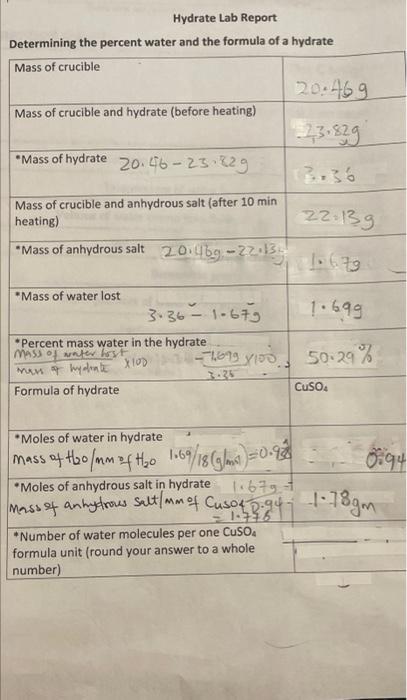 Hydrate Lab Report
Determining the percent water and the formula of a hydrate
Mass of crucible
20.46g
Mass of crucible and hydrate (before heating)
23.82g
*Mass of hydrate 20.46-23.82g
3.36
Mass of crucible and anhydrous salt (after 10 min
heating)
22.13g
*Mass of anhydrous salt 20.46g-22.13
1.67g
*Mass of water lost
3.36-1.67g
1.69g
*Percent mass water in the hydrate
Mass of water lost
mass of hydrate x100
1.69g x100
3.36
50.29%
Formula of hydrate
CuSO₄
*Moles of water in hydrate
Mass of H20/mm of H20 1.69/18(g/mol)=0.93
0.94
*Moles of anhydrous salt in hydrate 1.67g
Mass of anhydrous salt/mm of CuSO4 0.94
= 1.776
1.78gm
*Number of water molecules per one CuSO₄
formula unit (round your answer to a whole
number)